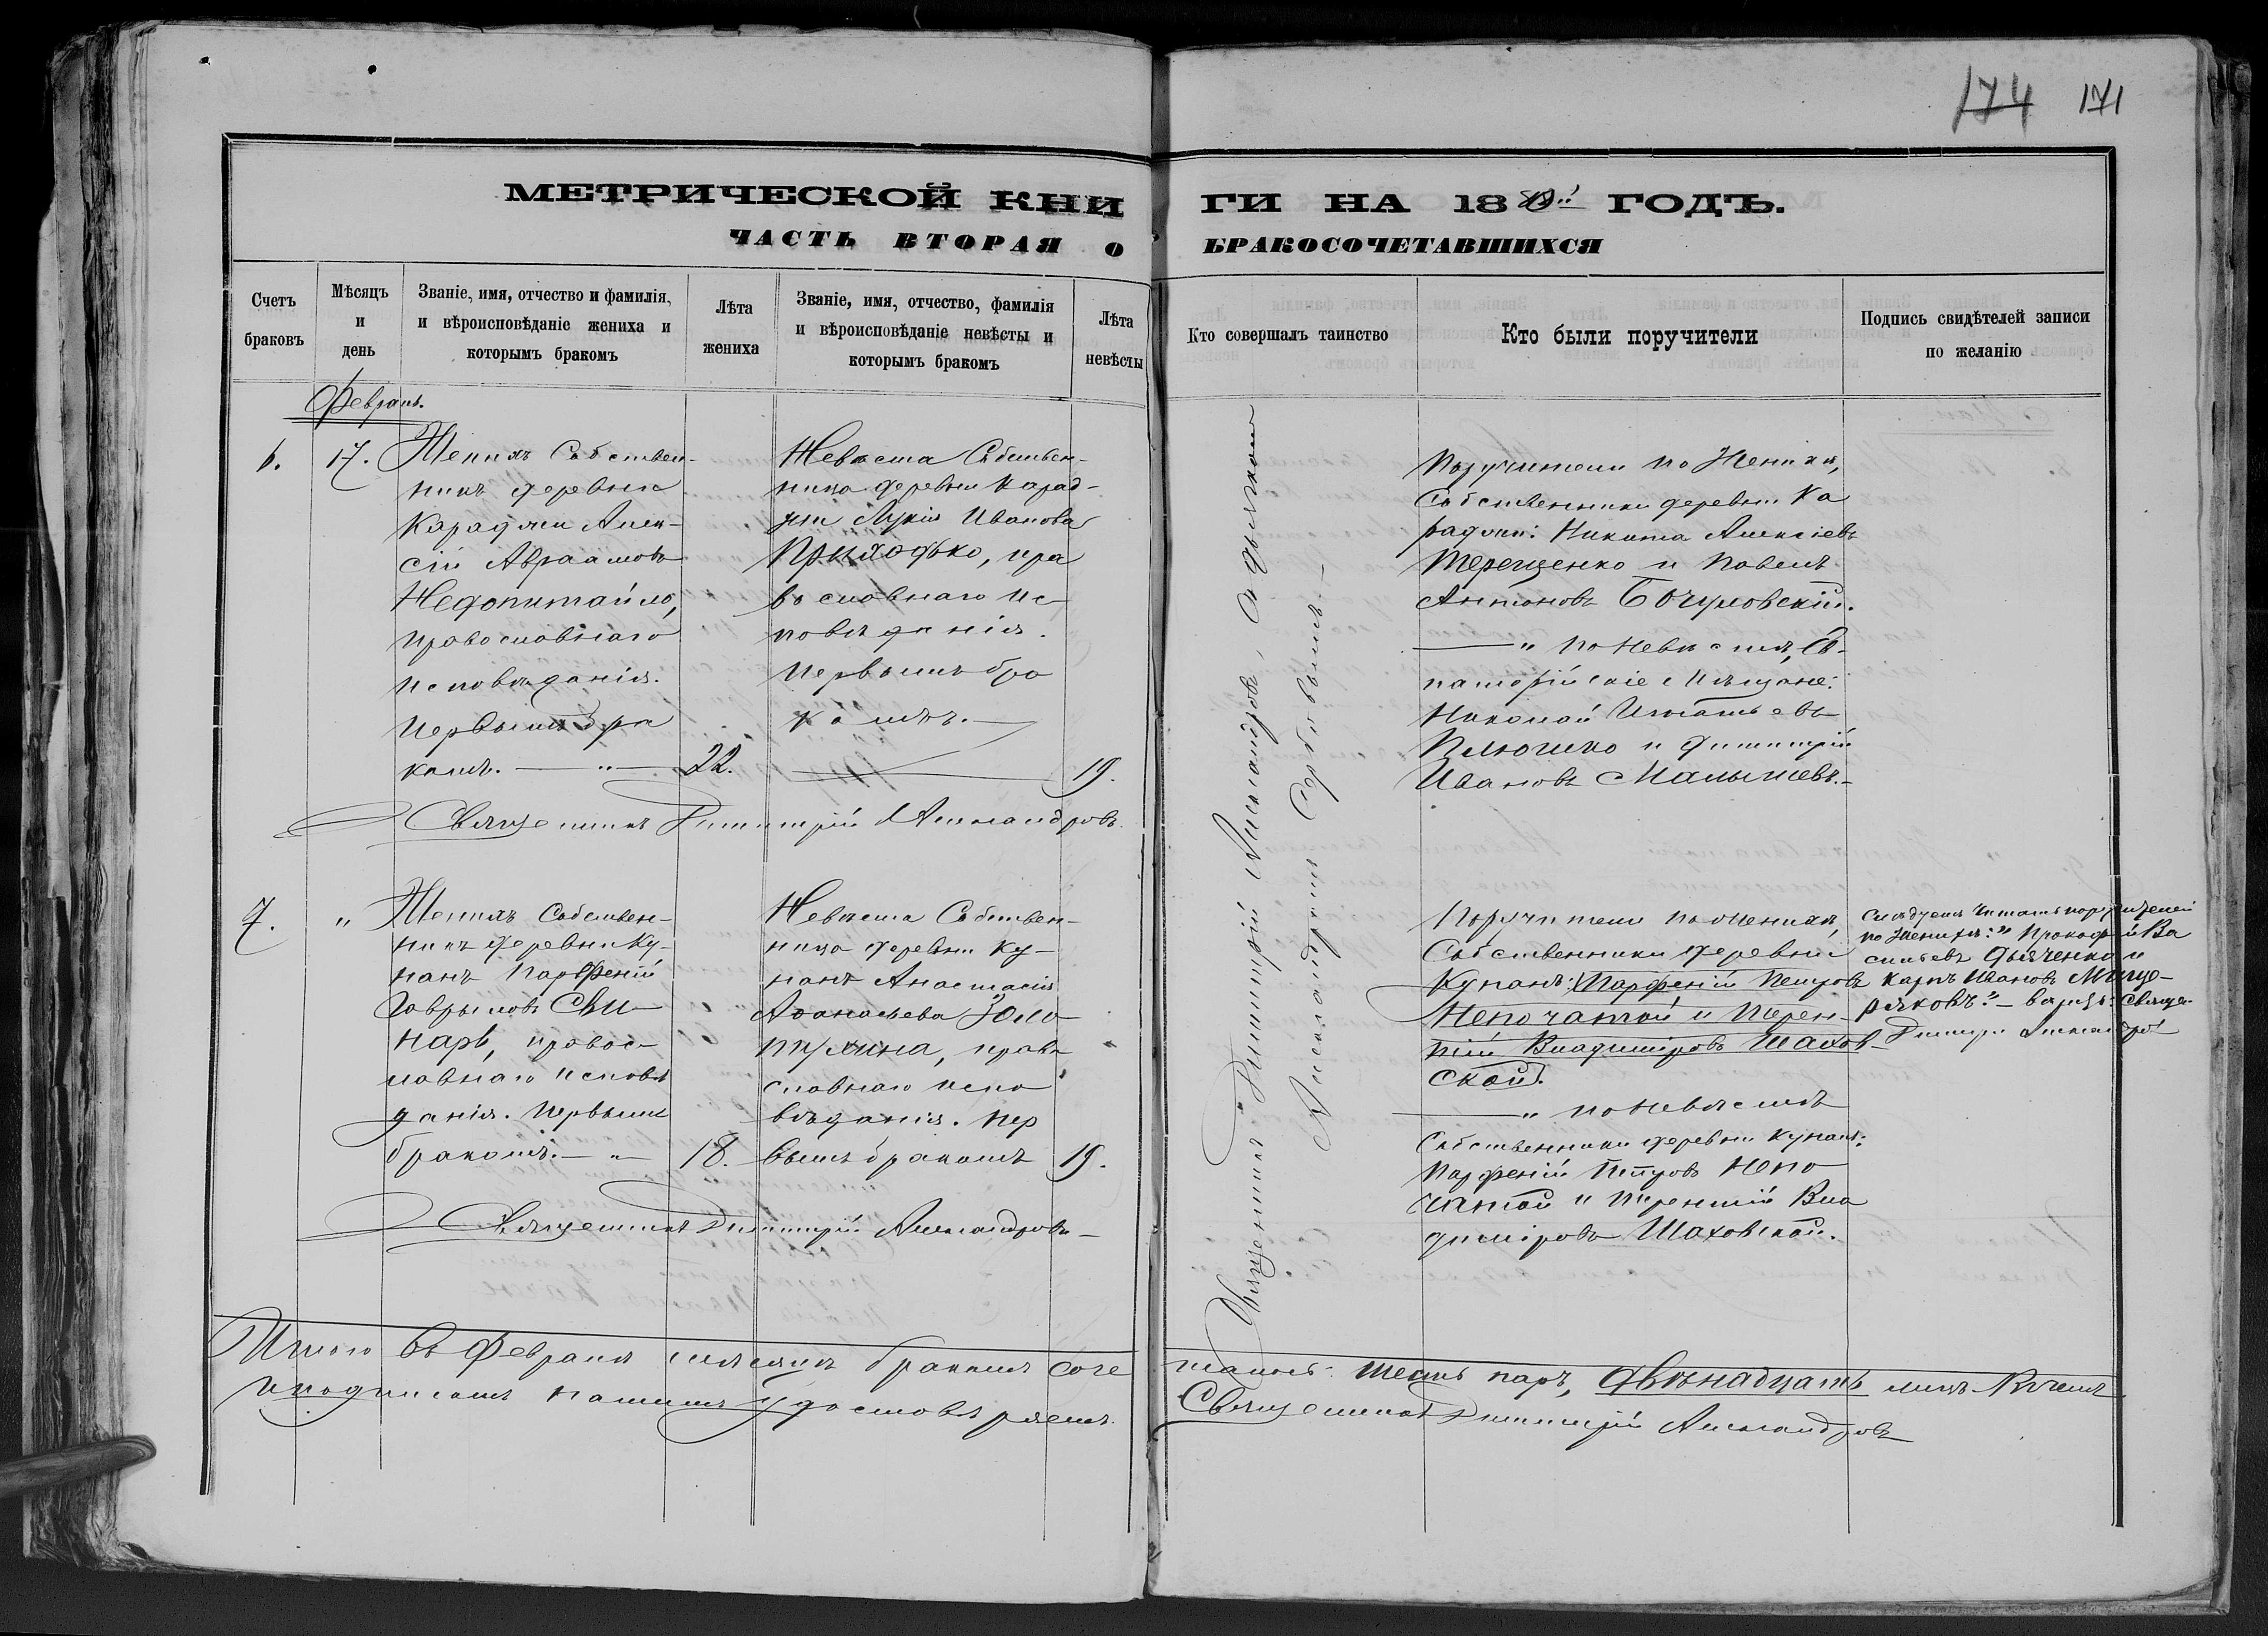 174 171
МЕТРИЧЕСКОЙ КНИ ГИ НА 18 ГОДЪ.
ЧАСТЬ ВТОРАЯ О БРАКОСОЧЕТАВШИХСЯ
Счетъ
браковъ
Мѣсяцъ
и
день
Званіе, имя, отчество и фамилія,
и вѣроисповѣданіе жениха и
которымъ бракомъ
Лѣта
жениха
Званіе, имя, отчество, фамилія
и вѣроисповѣданіе невѣсты и
которымъ бракомъ
Лѣта
невѣсты
Кто совершалъ таинство
Кто были поручители
Подпись свидѣтелей записи
по желанію
Февраль.
6.
17.
Женихъ Собствен-
никъ деревни
Караджи Алек-
сій Авраамовъ
Недопитайло,
православнаго
исповѣданія.
Первымъ бра
комъ. — " —
22.
Невѣста Собствен-
ница деревни Карад-
жи Лукія Иванова
Приходько, пра
вославнаго ис-
повѣданія.
Первымъ бра
комъ. —
19.
Священникъ Димитрій Александровъ.
Поручители по Жениху,
Собственники деревни Ка
раджи: Никита Алексіевъ
Терещенко и Павелъ
Антоновъ Бочуловскій.
— " по Невѣстѣ, Ев-
паторійскіе Мѣщане:
Николай Игнатьевъ
Илюшко и Димитрій
Ивановъ Малышевъ. —
7.
"
Женихъ Собствен-
никъ деревни Ку-
нанъ Парфеній
Гавриловъ Сви-
нарь, правос-
лавнаго исповѣ
данія. Первымъ
бракомъ. — " —
18.
Невѣста Собствен-
ница деревни Ку-
нанъ Анастасія
Аѳанасьева
права
славнаго испо
вѣданія. Пер
вымъ бракомъ
19.
Священникъ Димитрій Александровъ —
Поручители по Жениху,
Собственники деревни
Кунанъ: Парфеній Петровъ
Непочатой и Терен-
тій Владиміровъ Шахов-
ской.
— " по Невѣстѣ
Собственники деревни Кунанъ:
Парфеній Петровъ Непо
чатой и Терентій Вла
диміровъ Шаховской.
Слѣдуетъ читать поручителей
по Женихѣ: " Прокофій Ва
сильевъ Дьяченко и
Карпъ Ивановъ Меще-
ряковъ." — Священ.
Димитрій Александровъ
Священникъ Димитрій Александровъ, и дьячкомъ
Александромъ Сербиновымъ. —
Итого въ Февралѣ мѣсяцѣ бракомъ соче
талось: шесть паръ, двѣнадцать лицъ. В чемъ
и подписомъ нашимъ удостовѣряемъ.
Священникъ Димитрій Александровъ